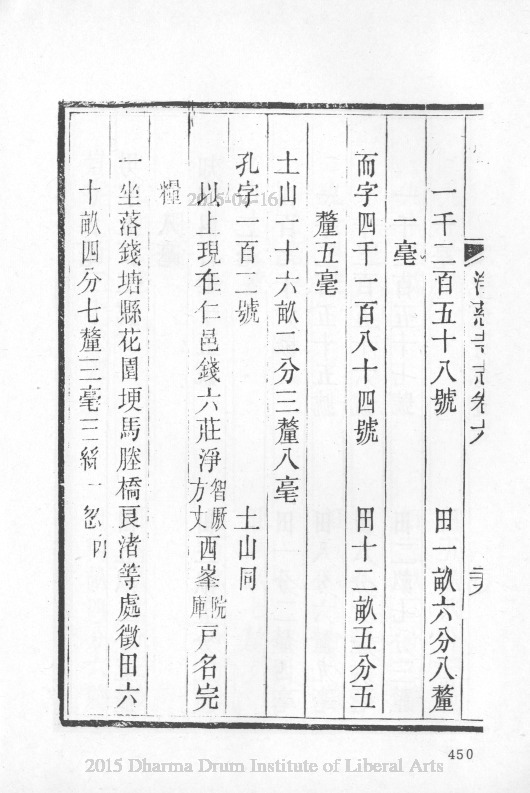 淨慈寺志卷六
一千二百五十八號　田一畝六分八釐
一毫
而字四千一百八十四號　田十二畝五分五
釐五毫
土山一十六畝二分三釐八毫
孔字一百二號　土山同
以上現在仁邑錢六莊淨智厫方丈西峯院庫戸名完
糧
一坐落錢塘縣花園埂馬塍橋良渚等處徵田六
十畝四分七釐三毫三絲一忽四
2015-04-16
450
2015 Dharma Drum Institute of Liberal Arts